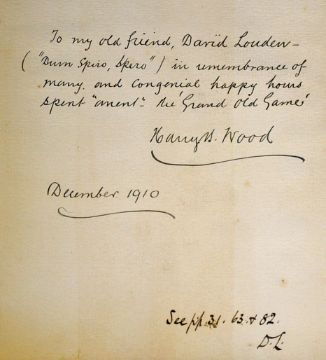 To my old friend, David Louden –
("Dum Spiro, Spero") in remembrance of
many, and congenial happy hours
spent "anent" the 'Grand Old Game'
Harry B. Wood
December 1910
See pp. 31. 63. & 82.
D.L.